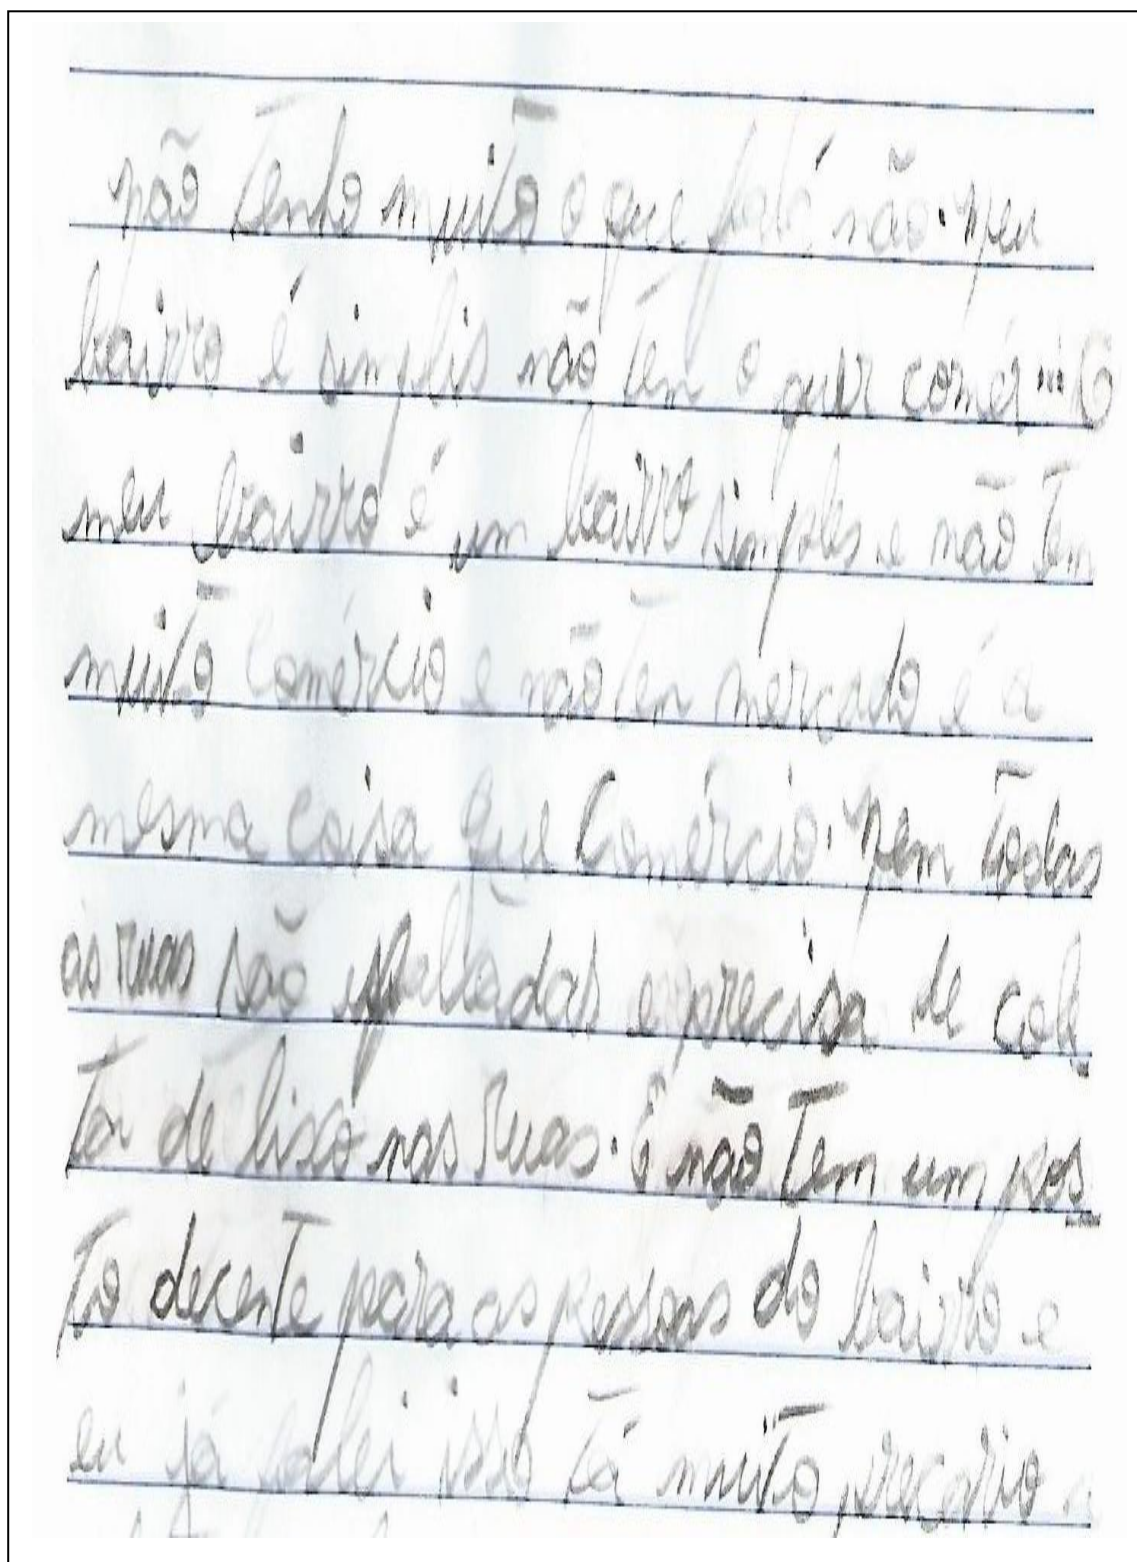 não tenho muito o que falá não. Meu
bairro é simplis não tem o quer comér... O
meu bairro é um bairro simples e não tem
muito comércio e não ten mercado é a
mesma coisa que Comércio. Nem todas
as ruas são espaltadas e precisa de cole
tor de lixo nas Ruas. E não tem um pos
to decente para as pessoas do bairro e
eu já falei isso tá muito precario